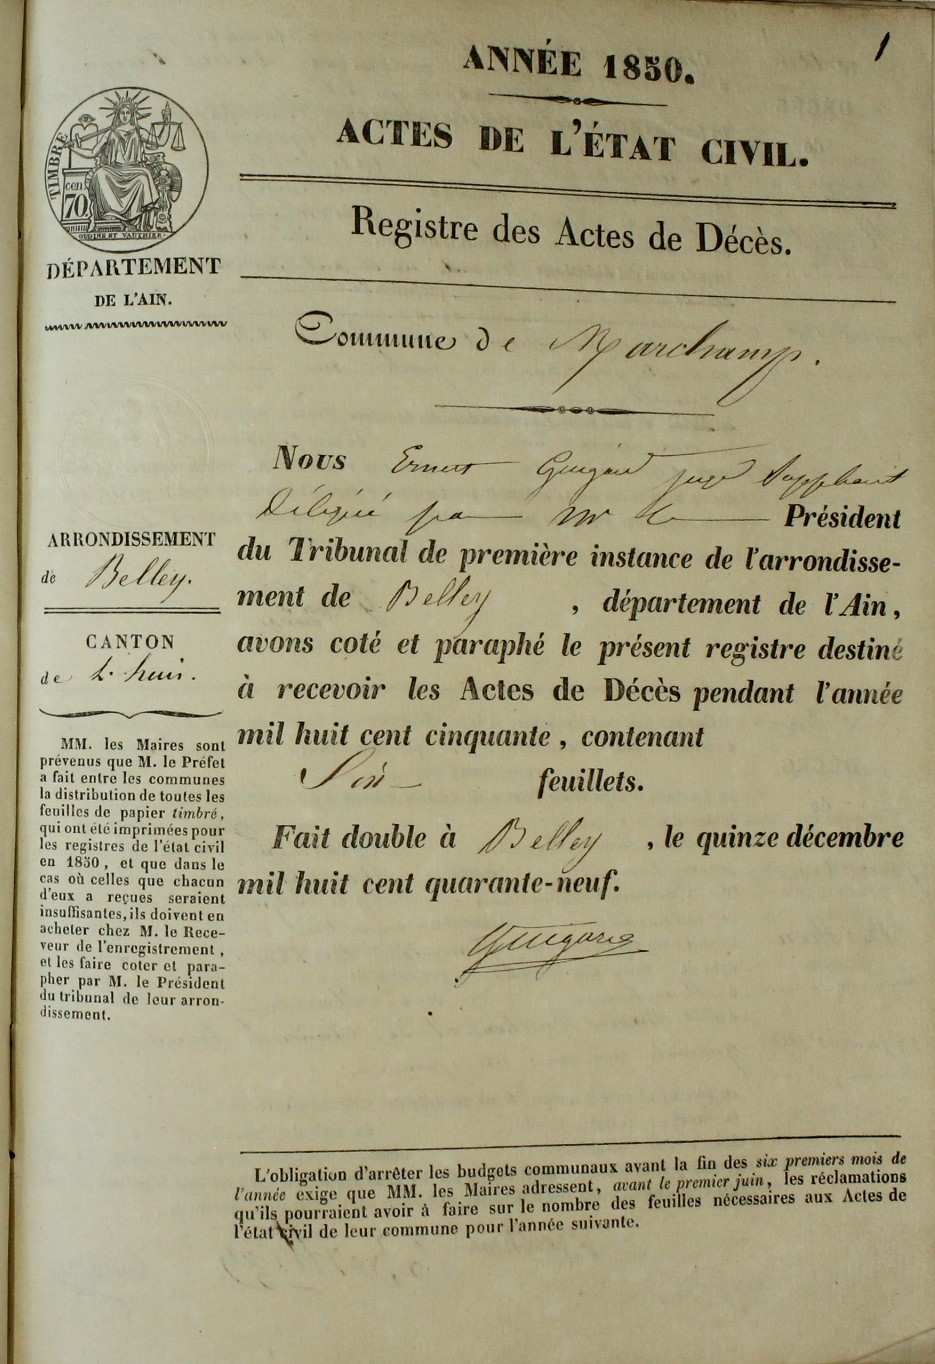 1
ANNÉE 1850.
ACTES DE L'ÉTAT CIVIL.
Registre des Actes de Décès.
TIMBRE
70
cen
OUDINE ET VAUTHIER
DÉPARTEMENT
DE L'AIN.
Commune de Marchamp.
Nous Ernest juge Suppléant
Délégué par Mr le Président
du Tribunal de première instance de l'arrondisse-
ment de Belley, département de l'Ain,
avons coté et paraphé le présent registre destiné
à recevoir les Actes de Décès pendant l'année
mil huit cent cinquante, contenant
Six feuillets.
Fait double à Belley, le quinze décembre
mil huit cent quarante-neuf.
ARRONDISSEMENT
de Belley.
CANTON
de L'huis.
MM. les Maires sont
prévenus que M. le Préfet
a fait entre les communes
la distribution de toutes les
feuilles de papier timbré,
qui ont été imprimées pour
les registres de l'état civil
en 1850, et que dans le
cas où celles que chacun
d'eux a reçues seraient
insuffisantes, ils doivent en
acheter chez M. le Rece-
veur de l'enregistrement,
et les faire coter et para-
pher par M. le Président
du tribunal de leur arron-
dissement.
L'obligation d'arrêter les budgets communaux avant la fin des six premiers mois de
l'année exige que MM. les Maires adressent, avant le premier juin, les réclamations
qu'ils pourraient avoir à faire sur le nombre des feuilles nécessaires aux Actes de
l'état civil de leur commune pour l'année suivante.